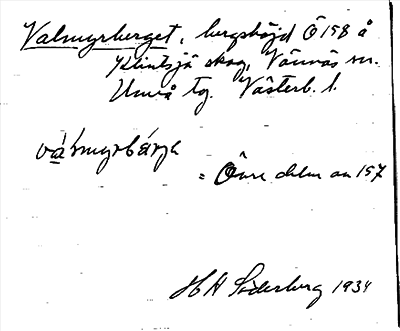 Valmyrberget, bergshöjd Ö 158 å
Klintsjö skog, Vännäs sn.
Umeå tg. Västerb. l.
válmyrbárjε
= Övre delen av 157
H A Söderberg 1934